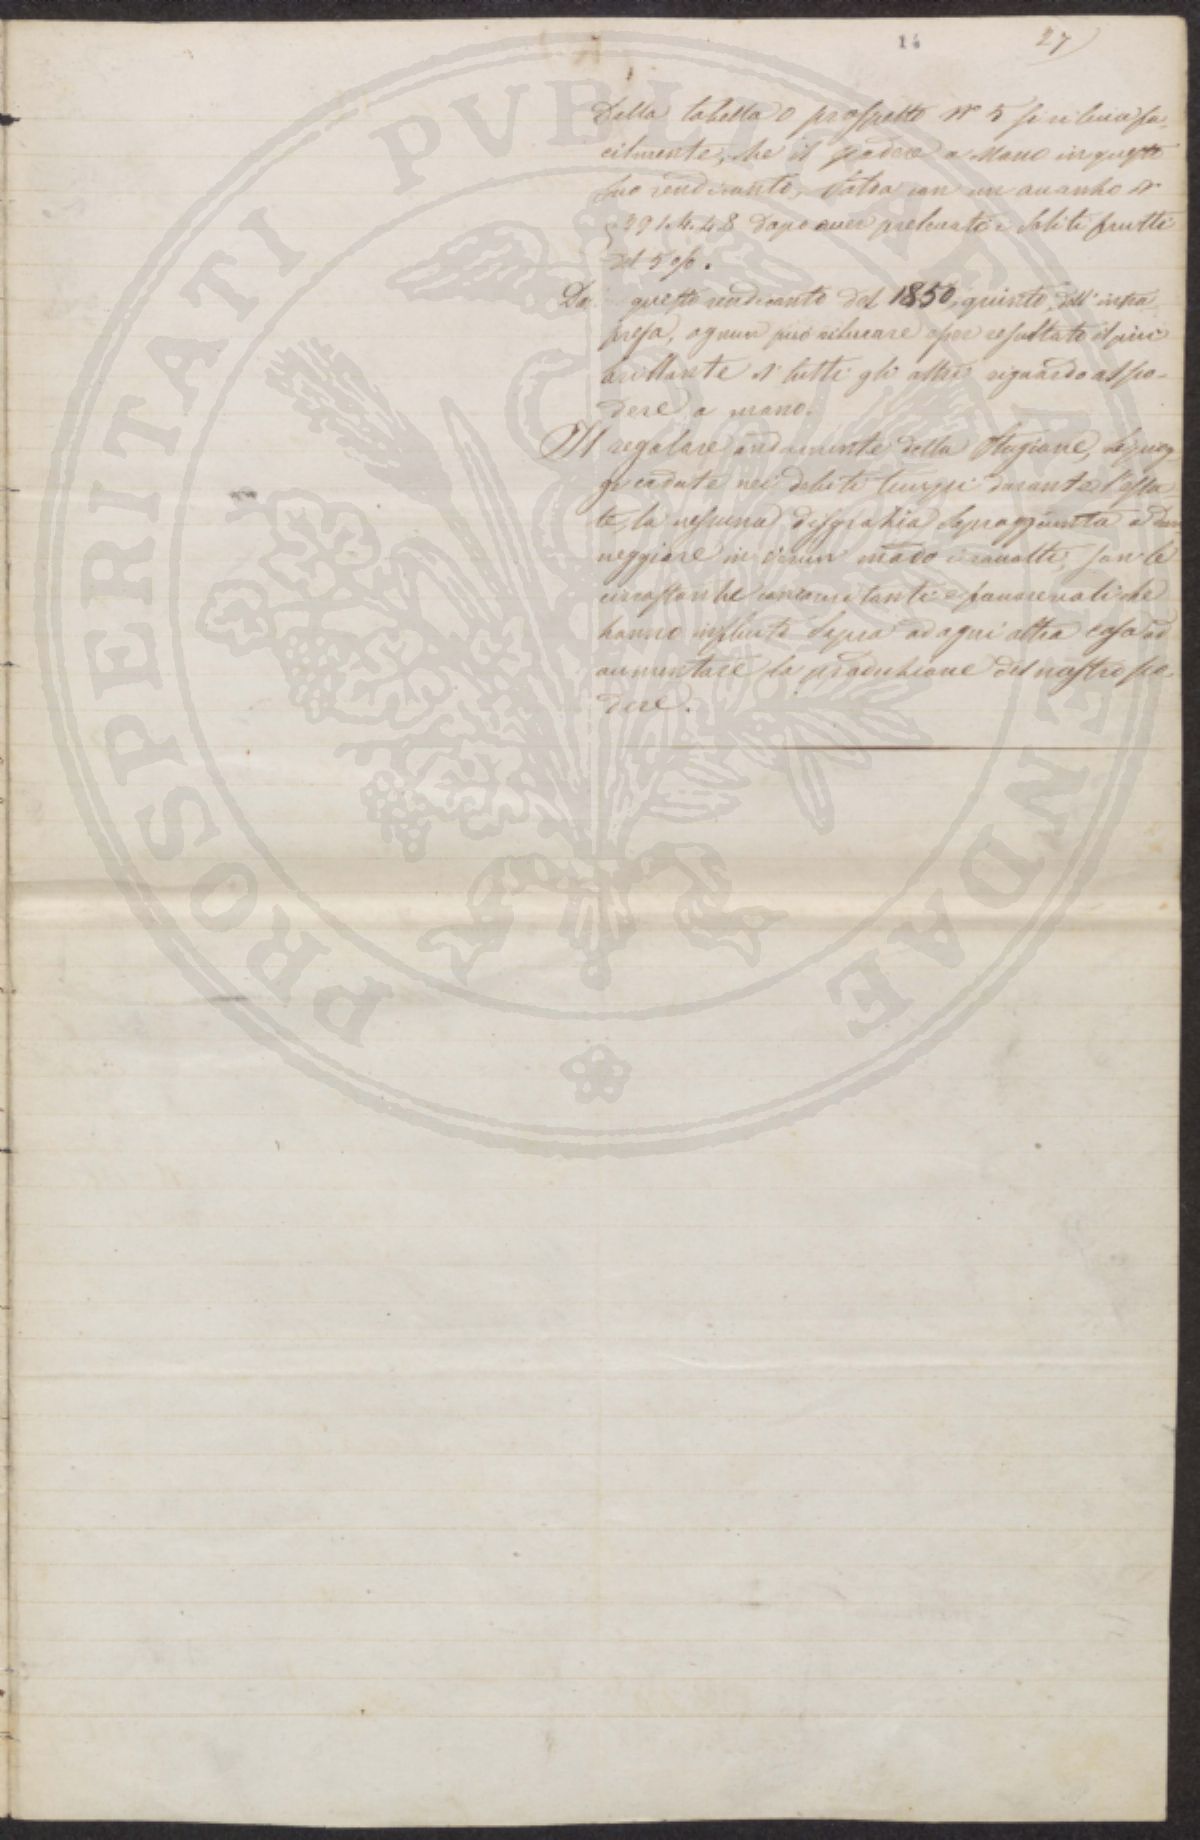 14 27
Dalla tabella o prospetto No 5 si rileva fa-
cilmente, che il podere a Mano in questo
suo rendiconto, salda con un avanzo di
£ 291.4.4.8 dopo aver prelevato i soliti frutti
del 5 o/o.
Da questo rendiconto del 1850, quinto dell'intra-
presa, ognun può rilevare esser resultato il più
brillante di tutti gli altri riguardo al po-
dere a mano.
Il regolare andamento della Stagione, le piog-
ge cadute nei debiti tempi durante l'esta-
te, la nessuna disgrazia sopraggiunta a dan
neggiare in verun modo i raccolti, son le
circostanze concomitanti e favorevoli che
hanno influito sopra ad ogni altra cosa ad
aumentare la produzione del nostro po-
dere.
PROSPERITATI PVBLICAE AVGENDAE